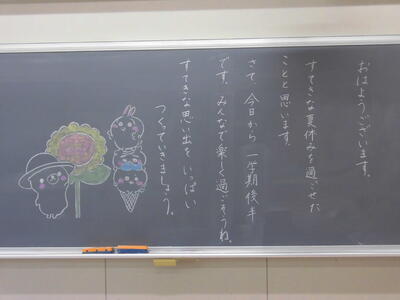 おはようございます。
すてきな夏休みを過ごせた
ことと思います。
さて、今日から一学期後半
です。みんなで楽しく過ごそうね。
すてきな思い出を、いっぱい
つくっていきましょう。